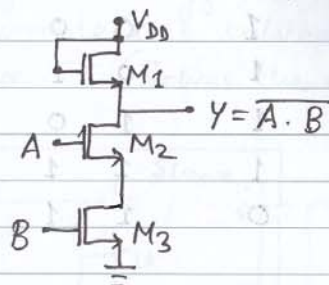 V_DD
M1
Y = \overline{A . B}
A
M2
B
M3